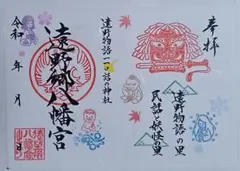 奉拝
遠野物語の里
民話と妖怪の里
遠野物語一一〇話の神社
遠野郷八幡宮
令和 年 月